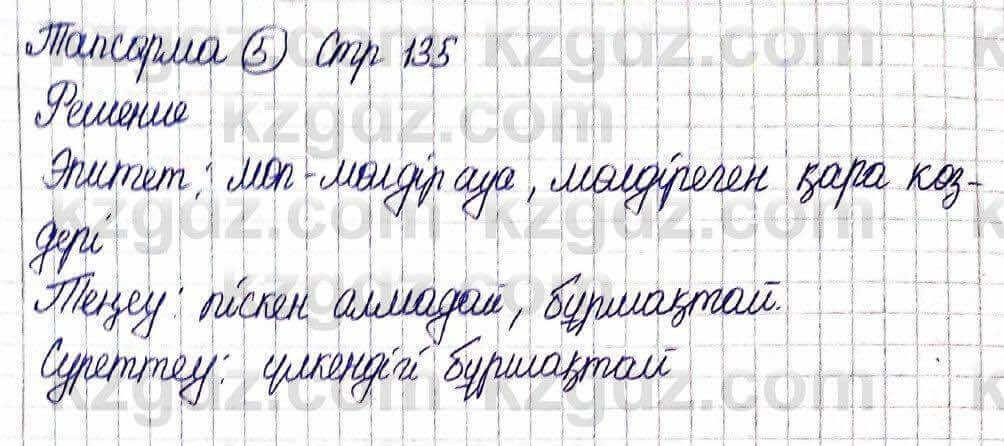 Тапсарма 5 Стр 135
Решение
Эпитет: мөп-мөлдір ауа, мөлдіреген қара көз-
дері
Теңеу: піскен алмадай, бұршақтай.
Суреттеу: үлкендігі бұршақтай
kzgdz.com